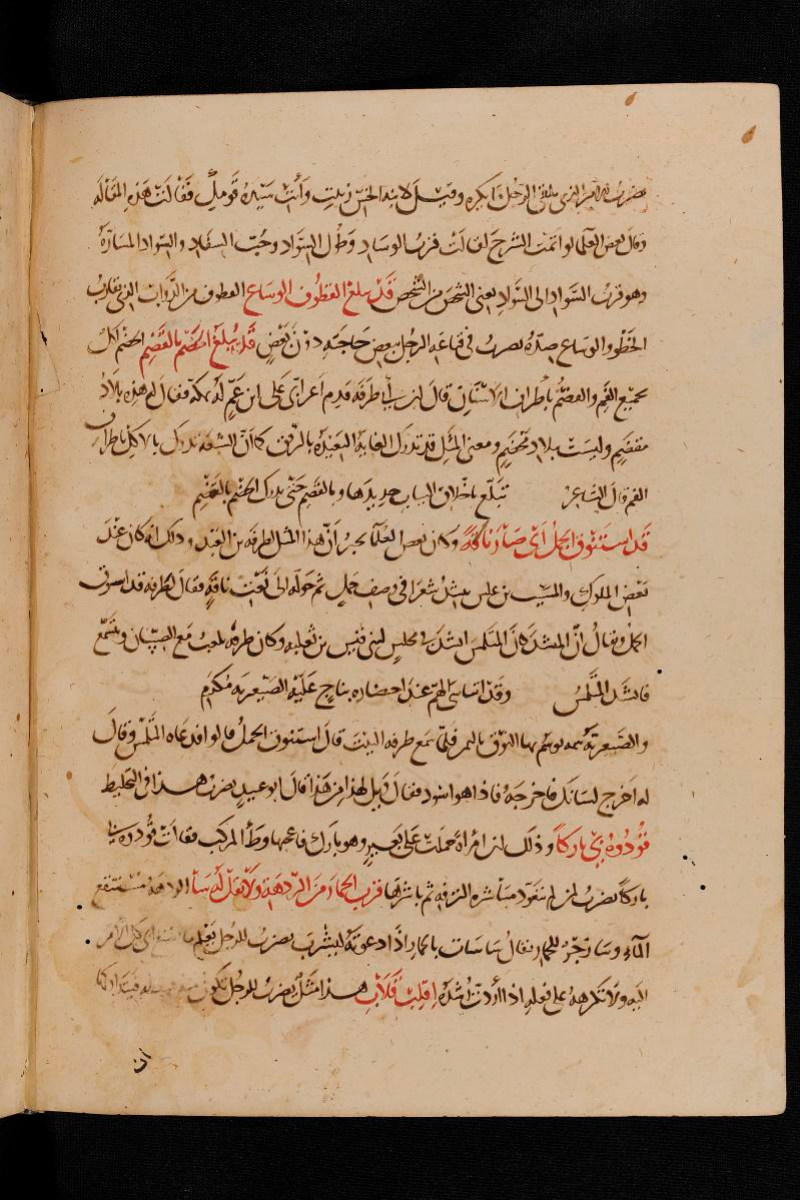 يضرب للأمر الذي يلقى الرجل بما يكره وقيل لابنة الخس زنيت وأنت سيدة قومك فقالت هذه المقالة
وقال بعض العلما لو اتمت الشرح لقالت قرب الوساد وطول السواد وحب السفاد والسواد المسارّة
وهو قرب السواد الى السواد يعنى الشخص من الشخص قد يبلغ القطوف الوساع القطوف من الدواب الذي يقارب
الخطو والوساع ضده يضرب في قناعة الرجل ببعض حاجته دون بعض قد يُبلغ الخضم بالقضم الخضم اكل
بجميع الفم والقضم بأطراف الاسنان قال ابن أبي طرفة قدم اعرابي على ابن عم له بمكة فقال له هذه بلاد
مقضم وليست ببلاد مخضم ومعنى المثل قد تدرك الغاية البعيدة بالرفق كما ان الشبعة تدرك بالاكل باطراف
الفم قال الشاعر تبلّغ باخلاق الثياب جديدها وبالقضم حتى تدرك الخضم بالقضم
قد استنوق الجمل اى صار ناقة وكان بعض العلما يخبر أن هذا المثل لطرفة بن العبد وذلك انه كان عند
بعض الملوك والمسيب بن علس ينشد شعرا في وصف جمل ثم حوله الى نعت ناقة فقال طرفه قد استنوق
الجمل ويقال انّ المنشد كان المتلمس انشد في مجلس لبنى قيس بن ثعلبه وكان طرفه يلعب مع الصبيان ويتسمّع
فانشد المتلمّس وقد اتناسى الهم عند احتضاره بناج عليه الصيعرية مُكدم
والصيعرية سمه يوسم بها النوق باليمن فلمّا سمع طرفه البيت قال استنوق الجمل قالوا فدعاه المتلمس وقال
له اخرج لسانك فاخرجه فاذا هو اسود فقال ويل لهذا من هذا قال ابو عبيد يضرب هذا في التخليط
قوّدوه بي باركًا وذلك ان امراة حملت على بعير وهو بارك فاعجبها وطأ المركب فقالت قوّدوه بي
باركا يضرب لمن لم يتعود مباشرة الترفه ثم باشرها قرب الحمار من الردهة ولا تقل له سأ الردهة مستنقع
الماء وسا زجر للحمار يقال ساسات بالحمار اذا دعوته ليشرب يضرب للرجل يعلم ما يصنع اى كل الامر
اليه ولا تكرهه على فعله اذا اريت رشده اقلب قلاب هذا مثل يضرب للرجل تكون